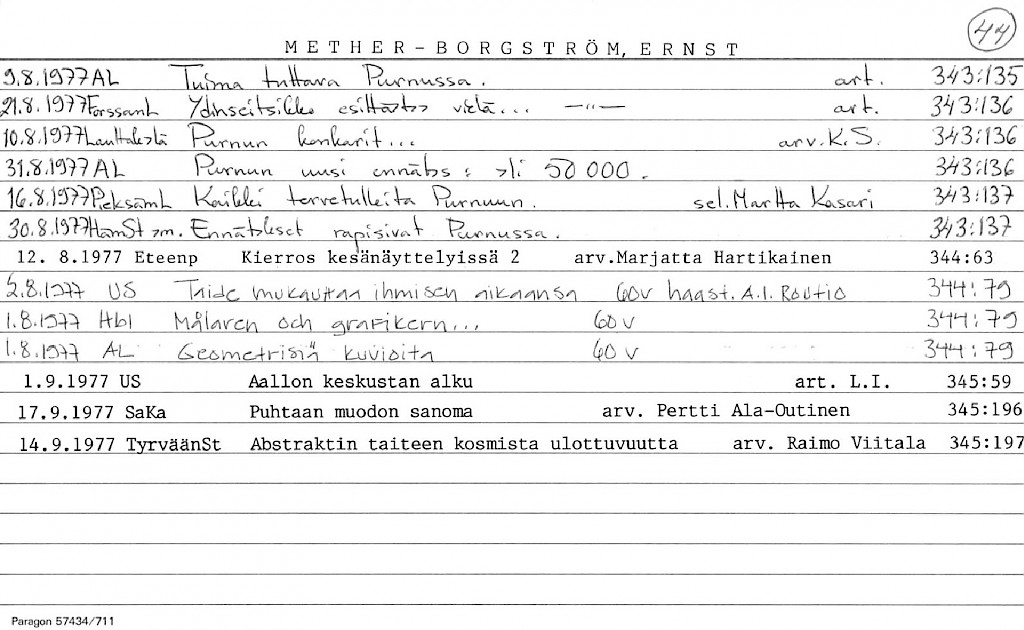 44
METHER-BORGSTRÖM, ERNST
9.8.1977 AL Tuima tuttava Purnussa. art. 343:135
21.8.1977 Forssanl Ydinseitsikko esittäytyy vielä... —"— art. 343:136
10.8.1977 Lauttakylä Purnun konkarit... arv. K.S. 343:136
31.8.1977 AL Purnun uusi ennätys: yli 50 000. 343:136
16.8.1977 Pieksäml Kaikki tervetulleita Purnuun. sel. Martta Kasari 343:137
30.8.1977 HämSt ym. Ennätykset rapisivat Purnussa. 343:137
12. 8.1977 Eteenp Kierros kesänäyttelyissä 2 arv.Marjatta Hartikainen 344:63
2.8.1977 US Taide mukauttaa ihmisen aikaansa 60v haast. A.I. Routio 344:79
1.8.1977 Hbl Målaren och grafikern... 60 v 344:79
1.8.1977 AL Geometrisiä kuvioita 60 v 344:79
1.9.1977 US Aallon keskustan alku art. L.I. 345:59
17.9.1977 SaKa Puhtaan muodon sanoma arv. Pertti Ala-Outinen 345:196
14.9.1977 TyrväänSt Abstraktin taiteen kosmista ulottuvuutta arv. Raimo Viitala 345:197
Paragon 57434/711